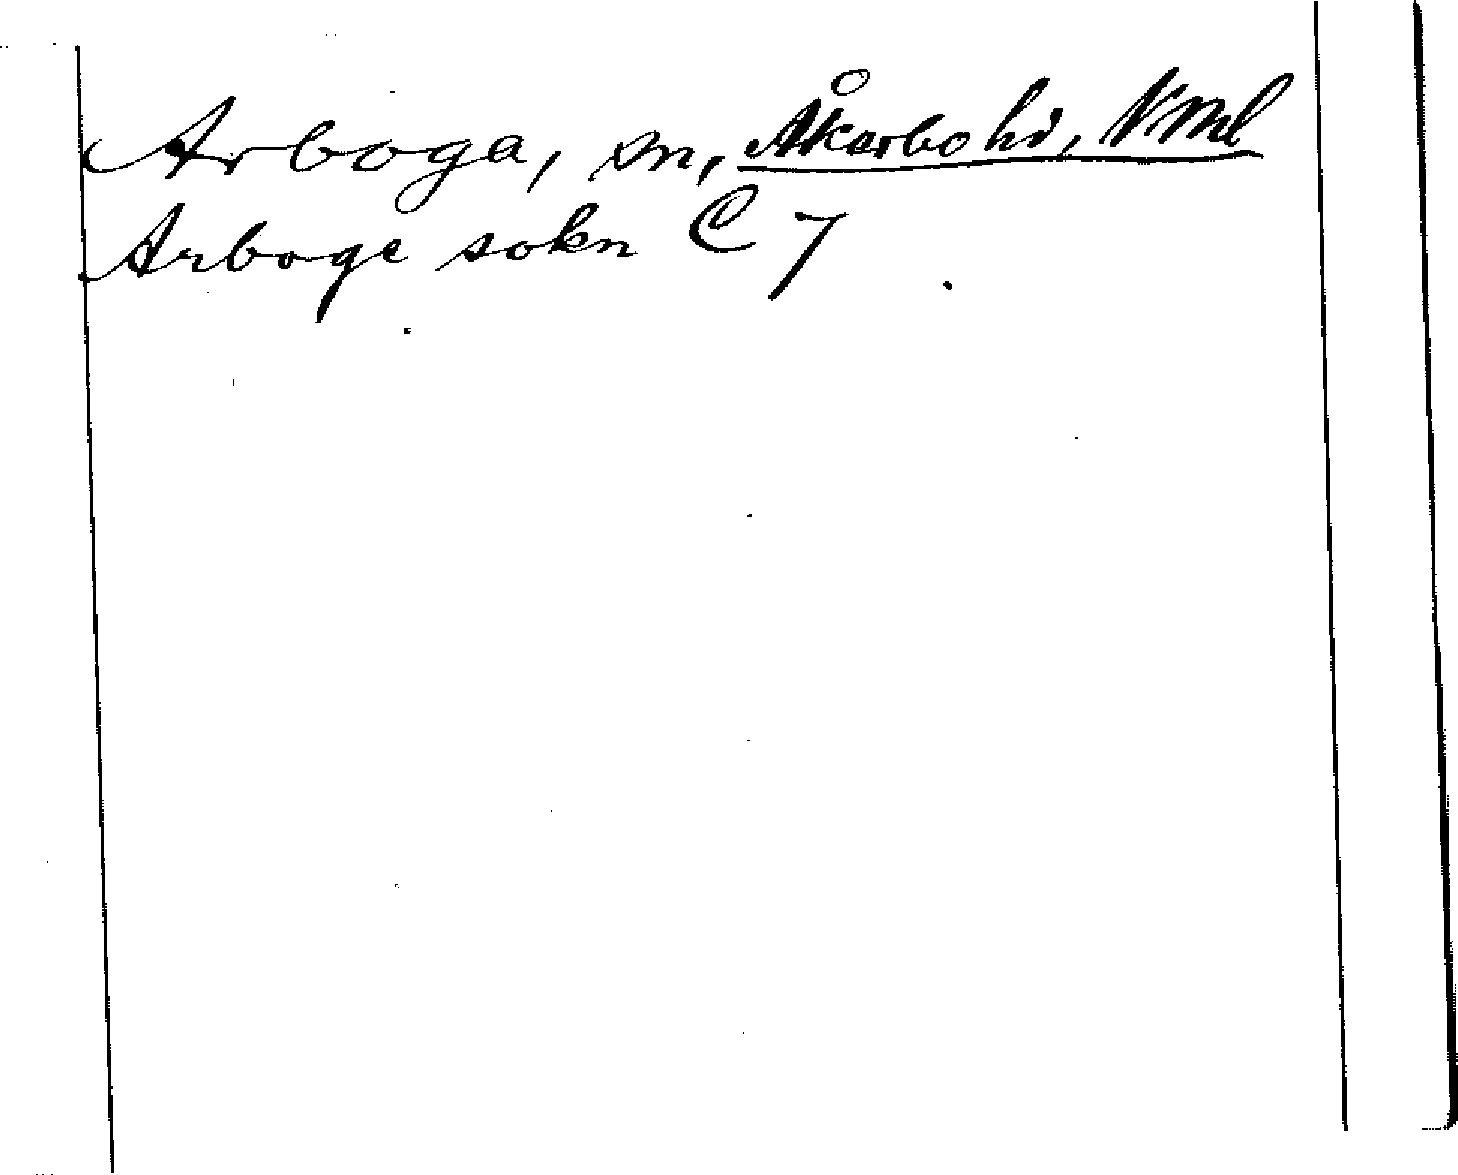 Arboga, sn, Åkerbo hd, Vml
Arboge sokn C 7